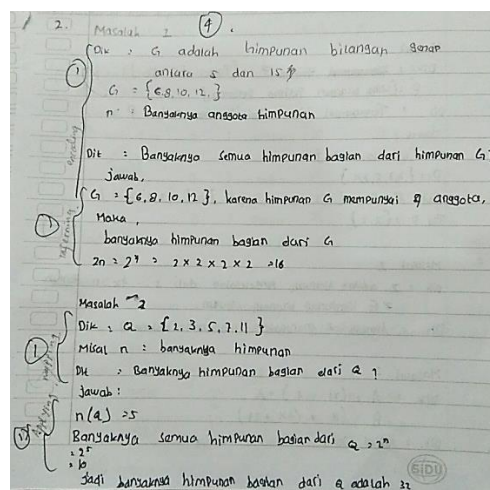 2. Masalah 1 4
Dik : G adalah himpunan bilangan genap
antara 5 dan 15
1 G = {6,8,10,12,}
n : Banyaknya anggota himpunan
encoding
Dit : Banyaknya semua himpunan bagian dari himpunan G
jawab,
G = {6,8,10,12}, karena himpunan G mempunyai 4 anggota,
Maka,
banyaknya himpunan bagian dari G
2n = 2⁴ = 2 x 2 x 2 x 2 = 16
Masalah 2
Dik : Q = {2,3,5,7,11}
1 Misal n : banyaknya himpunan
Dit : Banyaknya himpunan bagian dari Q ?
jawab :
n(Q) = 5
Banyaknya semua himpunan bagian dari Q = 2ⁿ
= 2⁵
= 10
Jadi banyaknya himpunan bagian dari Q adalah 32
SIDU